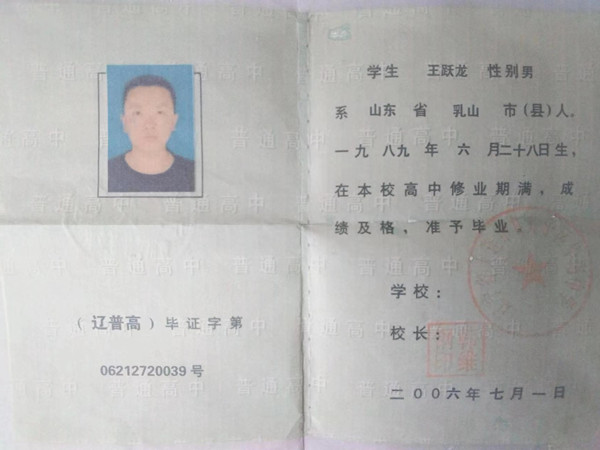 （辽普高）毕证字第
06212720039号
学生 王跃龙 性别男
系 山东 省 乳山 市（县）人，
一九八九年 六 月二十八日生，
在本校高中修业期满，成
绩及格，准予毕业。
学校：
校长：
二00六年七月一日
普通高中